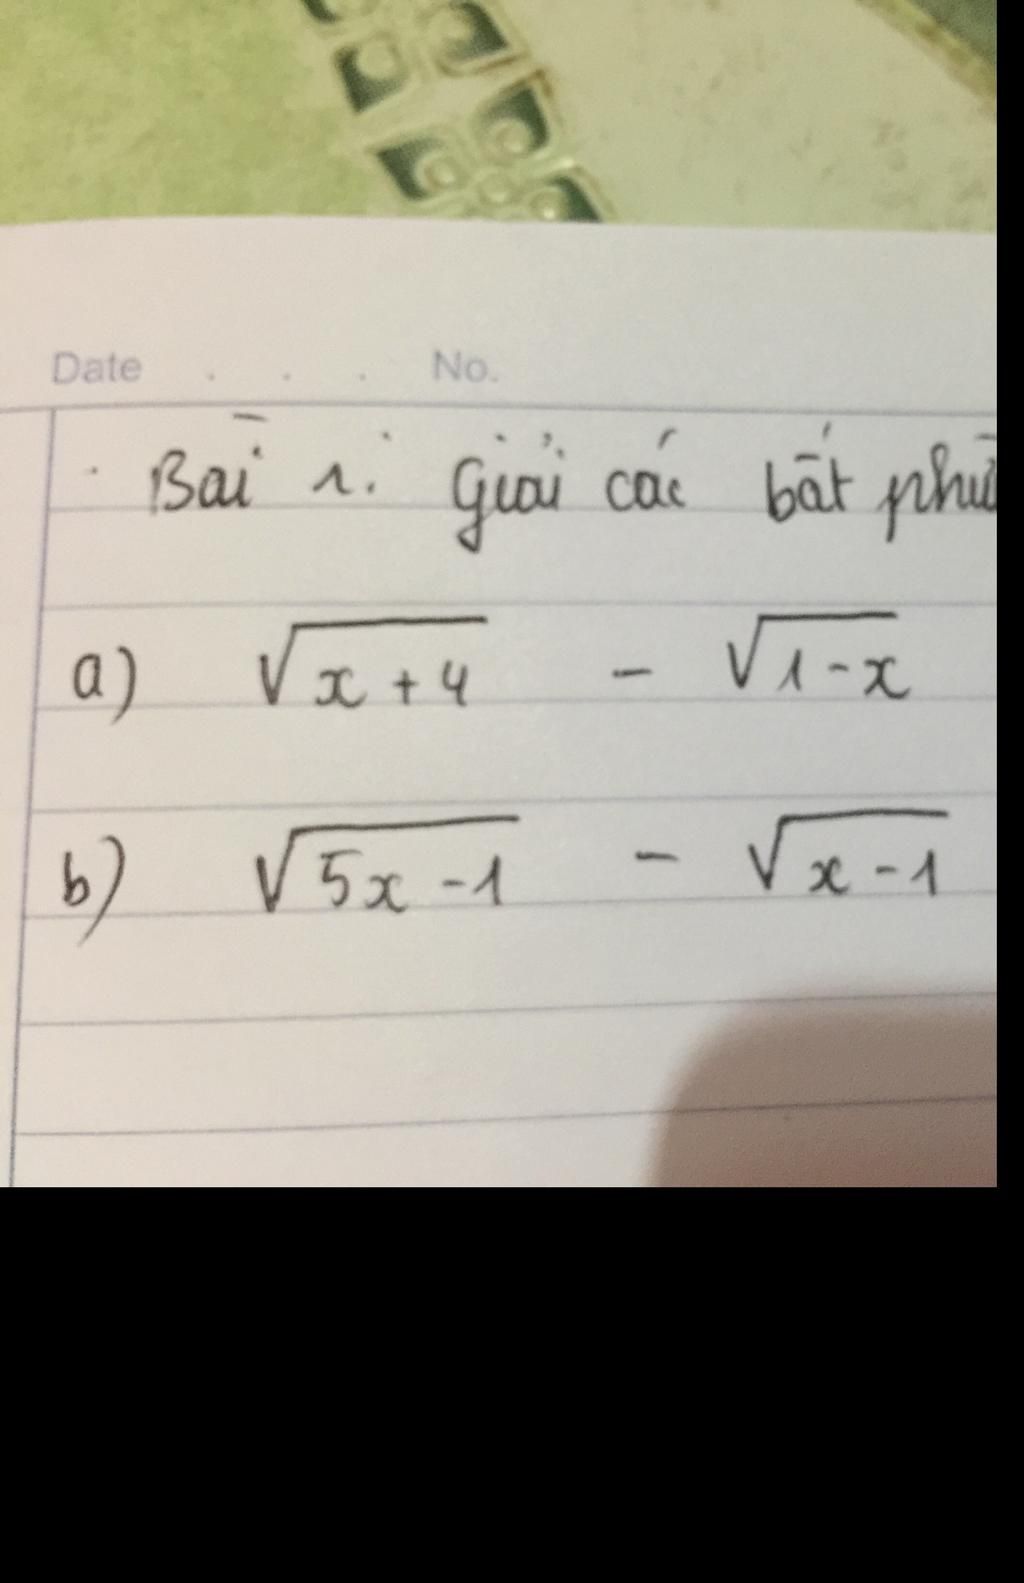 Date . . . No.
Bài 1. Giải các bất
a) √x + 4 - √1 - x
b) √5x - 1 - √x - 1